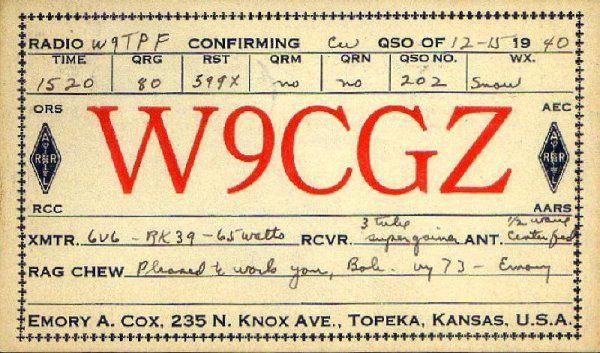 RADIO W9TPF CONFIRMING CW QSO OF 12-15 1940
TIME QRG RST QRM QRN QSO NO. WX.
1520 80 599X no no 202 Snow
ORS AEC
W9CGZ
A R R L A R R L
RCC AARS
3 tube 1/2 wave
XMTR. 6V6 - RK39 - 65 watts RCVR. supergainer ANT. Center fed
RAG CHEW Pleased to work you, Bob. vy 73 - Emory
EMORY A. COX, 235 N. KNOX AVE., TOPEKA, KANSAS, U.S.A.